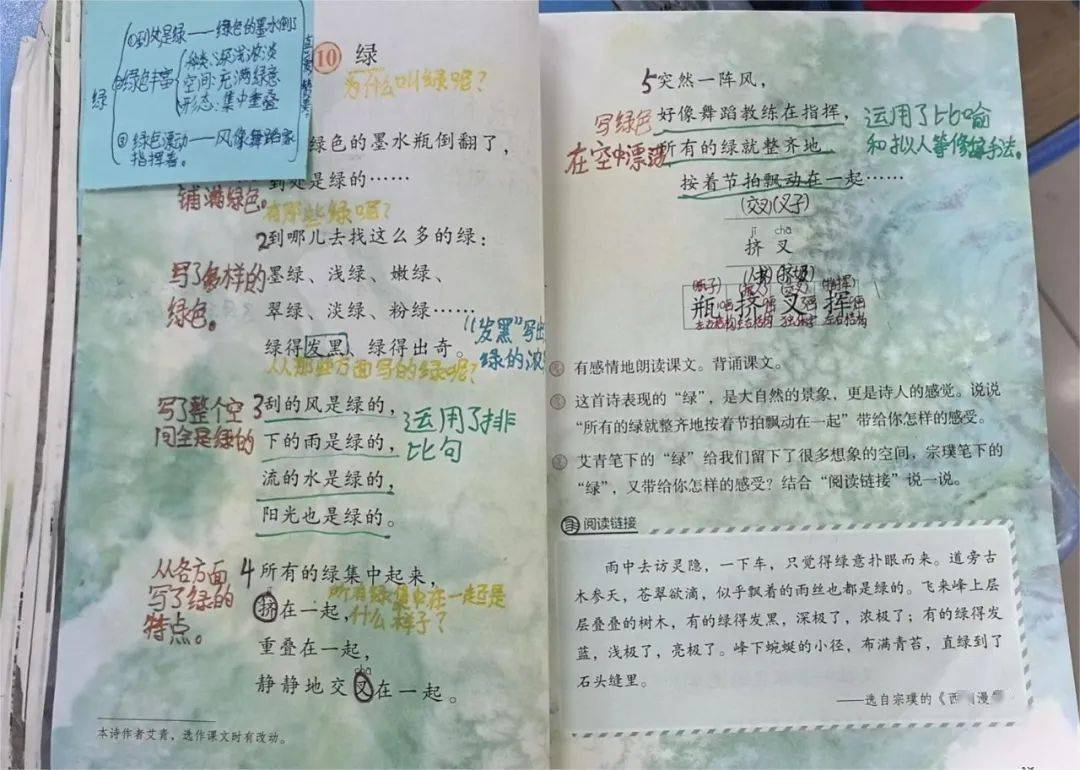 绿
①到处是绿——绿色的墨水倒了
②绿色丰富
深浅浓淡
空间:充满绿意
形态:集中重叠
③绿色漂动——风像舞蹈家
指挥着。
10 绿
为什么叫绿呢?
绿色的墨水瓶倒翻了,
到处是绿的……
铺满绿色。
有哪些绿呢?
2到哪儿去找这么多的绿:
写了多样的
绿色。
墨绿、浅绿、嫩绿、
翠绿、淡绿、粉绿……
绿得发黑、绿得出奇。
“发黑”写出
绿的浓
从那些方面写的绿呢?
写了整个空
间全是绿的
3刮的风是绿的,
下的雨是绿的,
流的水是绿的,
阳光也是绿的。
运用了排
比句
从各方面
写了绿的
特点。
4所有的绿集中起来,
挤在一起,
所有绿集中在一起还是
什么样子?
重叠在一起,
chā
静静地交叉在一起。
本诗作者艾青,选作课文时有改动。
5突然一阵风,
好像舞蹈教练在指挥,
所有的绿就整齐地
按着节拍飘动在一起……
写绿色
在空中漂动
运用了比喻
和拟人等修辞手法。
(交叉)(叉子)
jǐ chā
挤 叉
瓶 挤 叉 挥
有感情地朗读课文。背诵课文。
这首诗表现的“绿”,是大自然的景象,更是诗人的感觉。说说
“所有的绿就整齐地按着节拍飘动在一起”带给你怎样的感受。
艾青笔下的“绿”给我们留下了很多想象的空间,宗璞笔下的
“绿”,又带给你怎样的感受?结合“阅读链接”说一说。
阅读链接
雨中去访灵隐,一下车,只觉得绿意扑眼而来。道旁古
木参天,苍翠欲滴,似乎飘着的雨丝也都是绿的。飞来峰上层
层叠叠的树木,有的绿得发黑,深极了,浓极了;有的绿得发
蓝,浅极了,亮极了。峰下蜿蜒的小径,布满青苔,直绿到了
石头缝里。
——选自宗璞的《西 漫